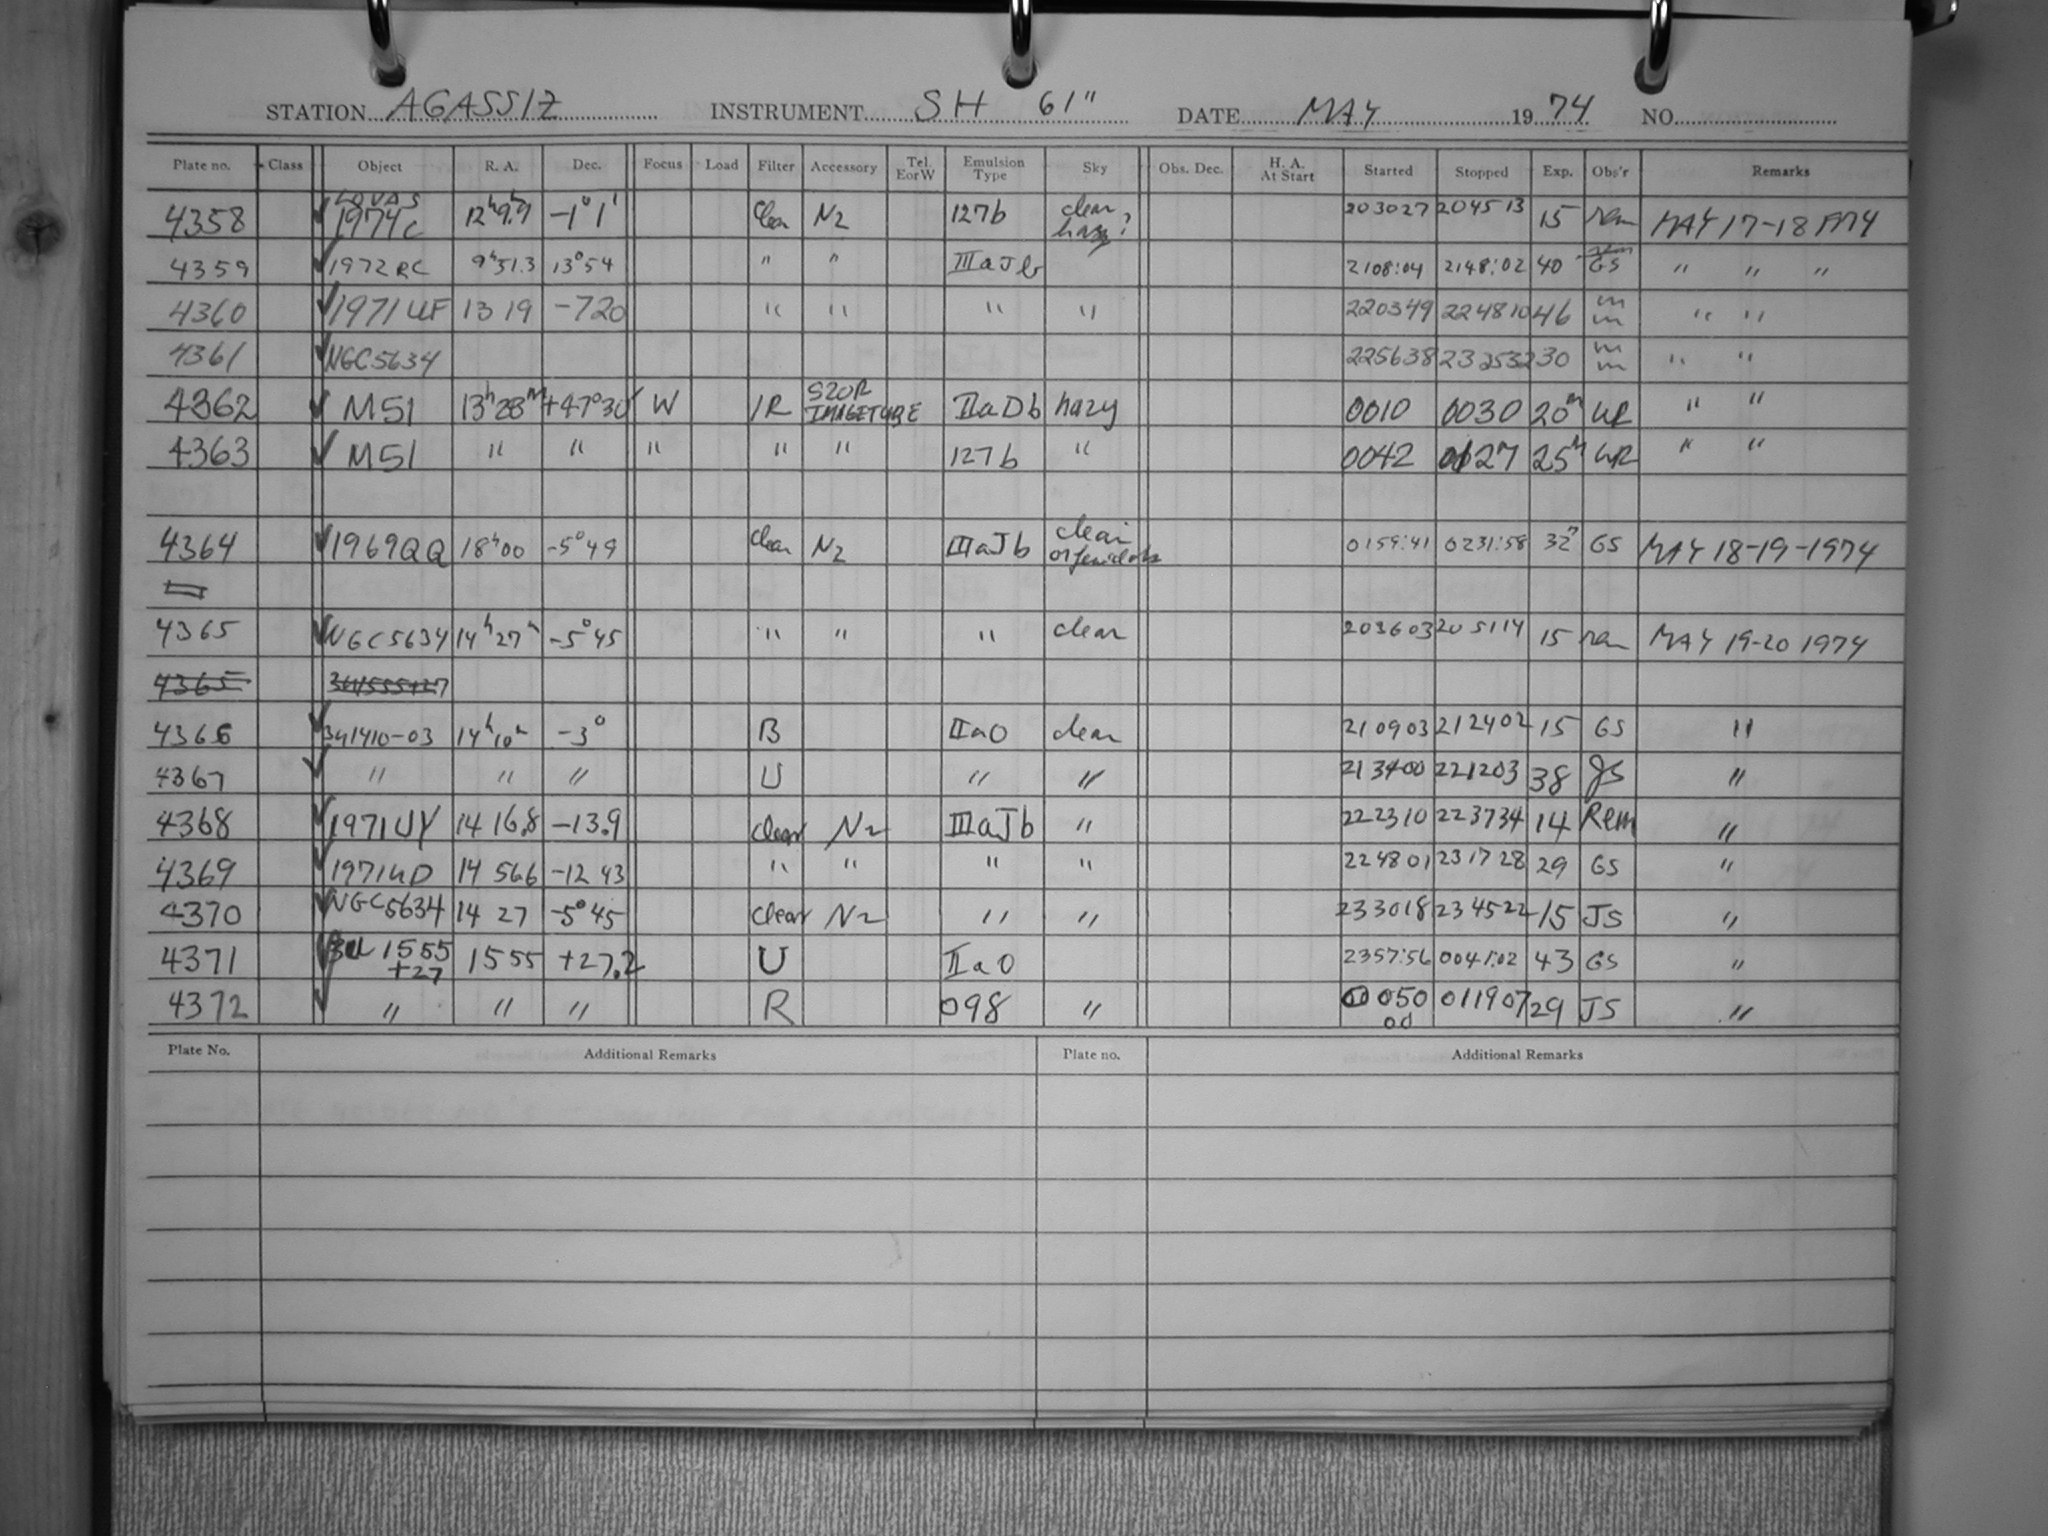 STATION AGASSIZ INSTRUMENT SH 61" DATE MAY 19 74 NO.
Plate no. Class Object R. A. Dec. Focus Load Filter Accessory Tel. E or W Emulsion Type Sky Obs. Dec. H. A. At Start Started Stopped Exp. Obs'r Remarks
4358 LOVAS 1974c 12h9.9 -1°1' Clear N2 127b clear hazy? 203027 204513 15 rem MAY 17-18 1974
4359 1972 RC 9h51.3 13°54 " " IIIaJb 2108:04 2148:02 40 GS " " "
4360 1971 UF 13 19 -720 " " " " 220349 224810 46 " "
4361 NGC5634 225638 232532 30 " "
4362 M51 13h28m +47°30' W IR S20R IMAGETUBE IIaDb hazy 0010 0030 20m WR " "
4363 M51 " " " " " 127b " 0042 0127 25m WR " "
4364 1969QQ 18h00 -5°49 Clear N2 IIIaJb clear 0159:41 0231:58 32 GS MAY 18-19-1974
4365 NGC5634 14h27m -5°45 " " " clear 203603 205114 15 rem MAY 19-20 1974
4365 3U1555+27
4366 3U1410-03 14h10m -3° B IIaO clear 210903 212402 15 GS "
4367 " " " U " " 213400 221203 38 JS "
4368 1971UY 14 16.8 -13.9 clear N2 IIIaJb " 222310 223734 14 Rem "
4369 1971UD 14 566 -12 43 " " " " 224801 231728 29 GS "
4370 NGC5634 14 27 -5°45 clear N2 " " 233018 234522 15 JS "
4371 3U 1555 +27 1555 +27.2 U IIaO 2357:56 0041:02 43 GS "
4372 " " " R 098 " 0050 00 011907 29 JS "
Plate No. Additional Remarks Plate no. Additional Remarks